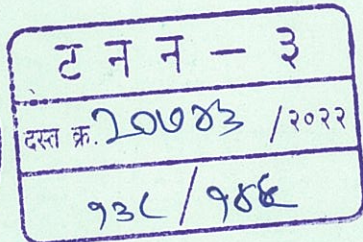 ट न न - ३
दस्त क्र. २०७४३ /२०२२
१३८ /